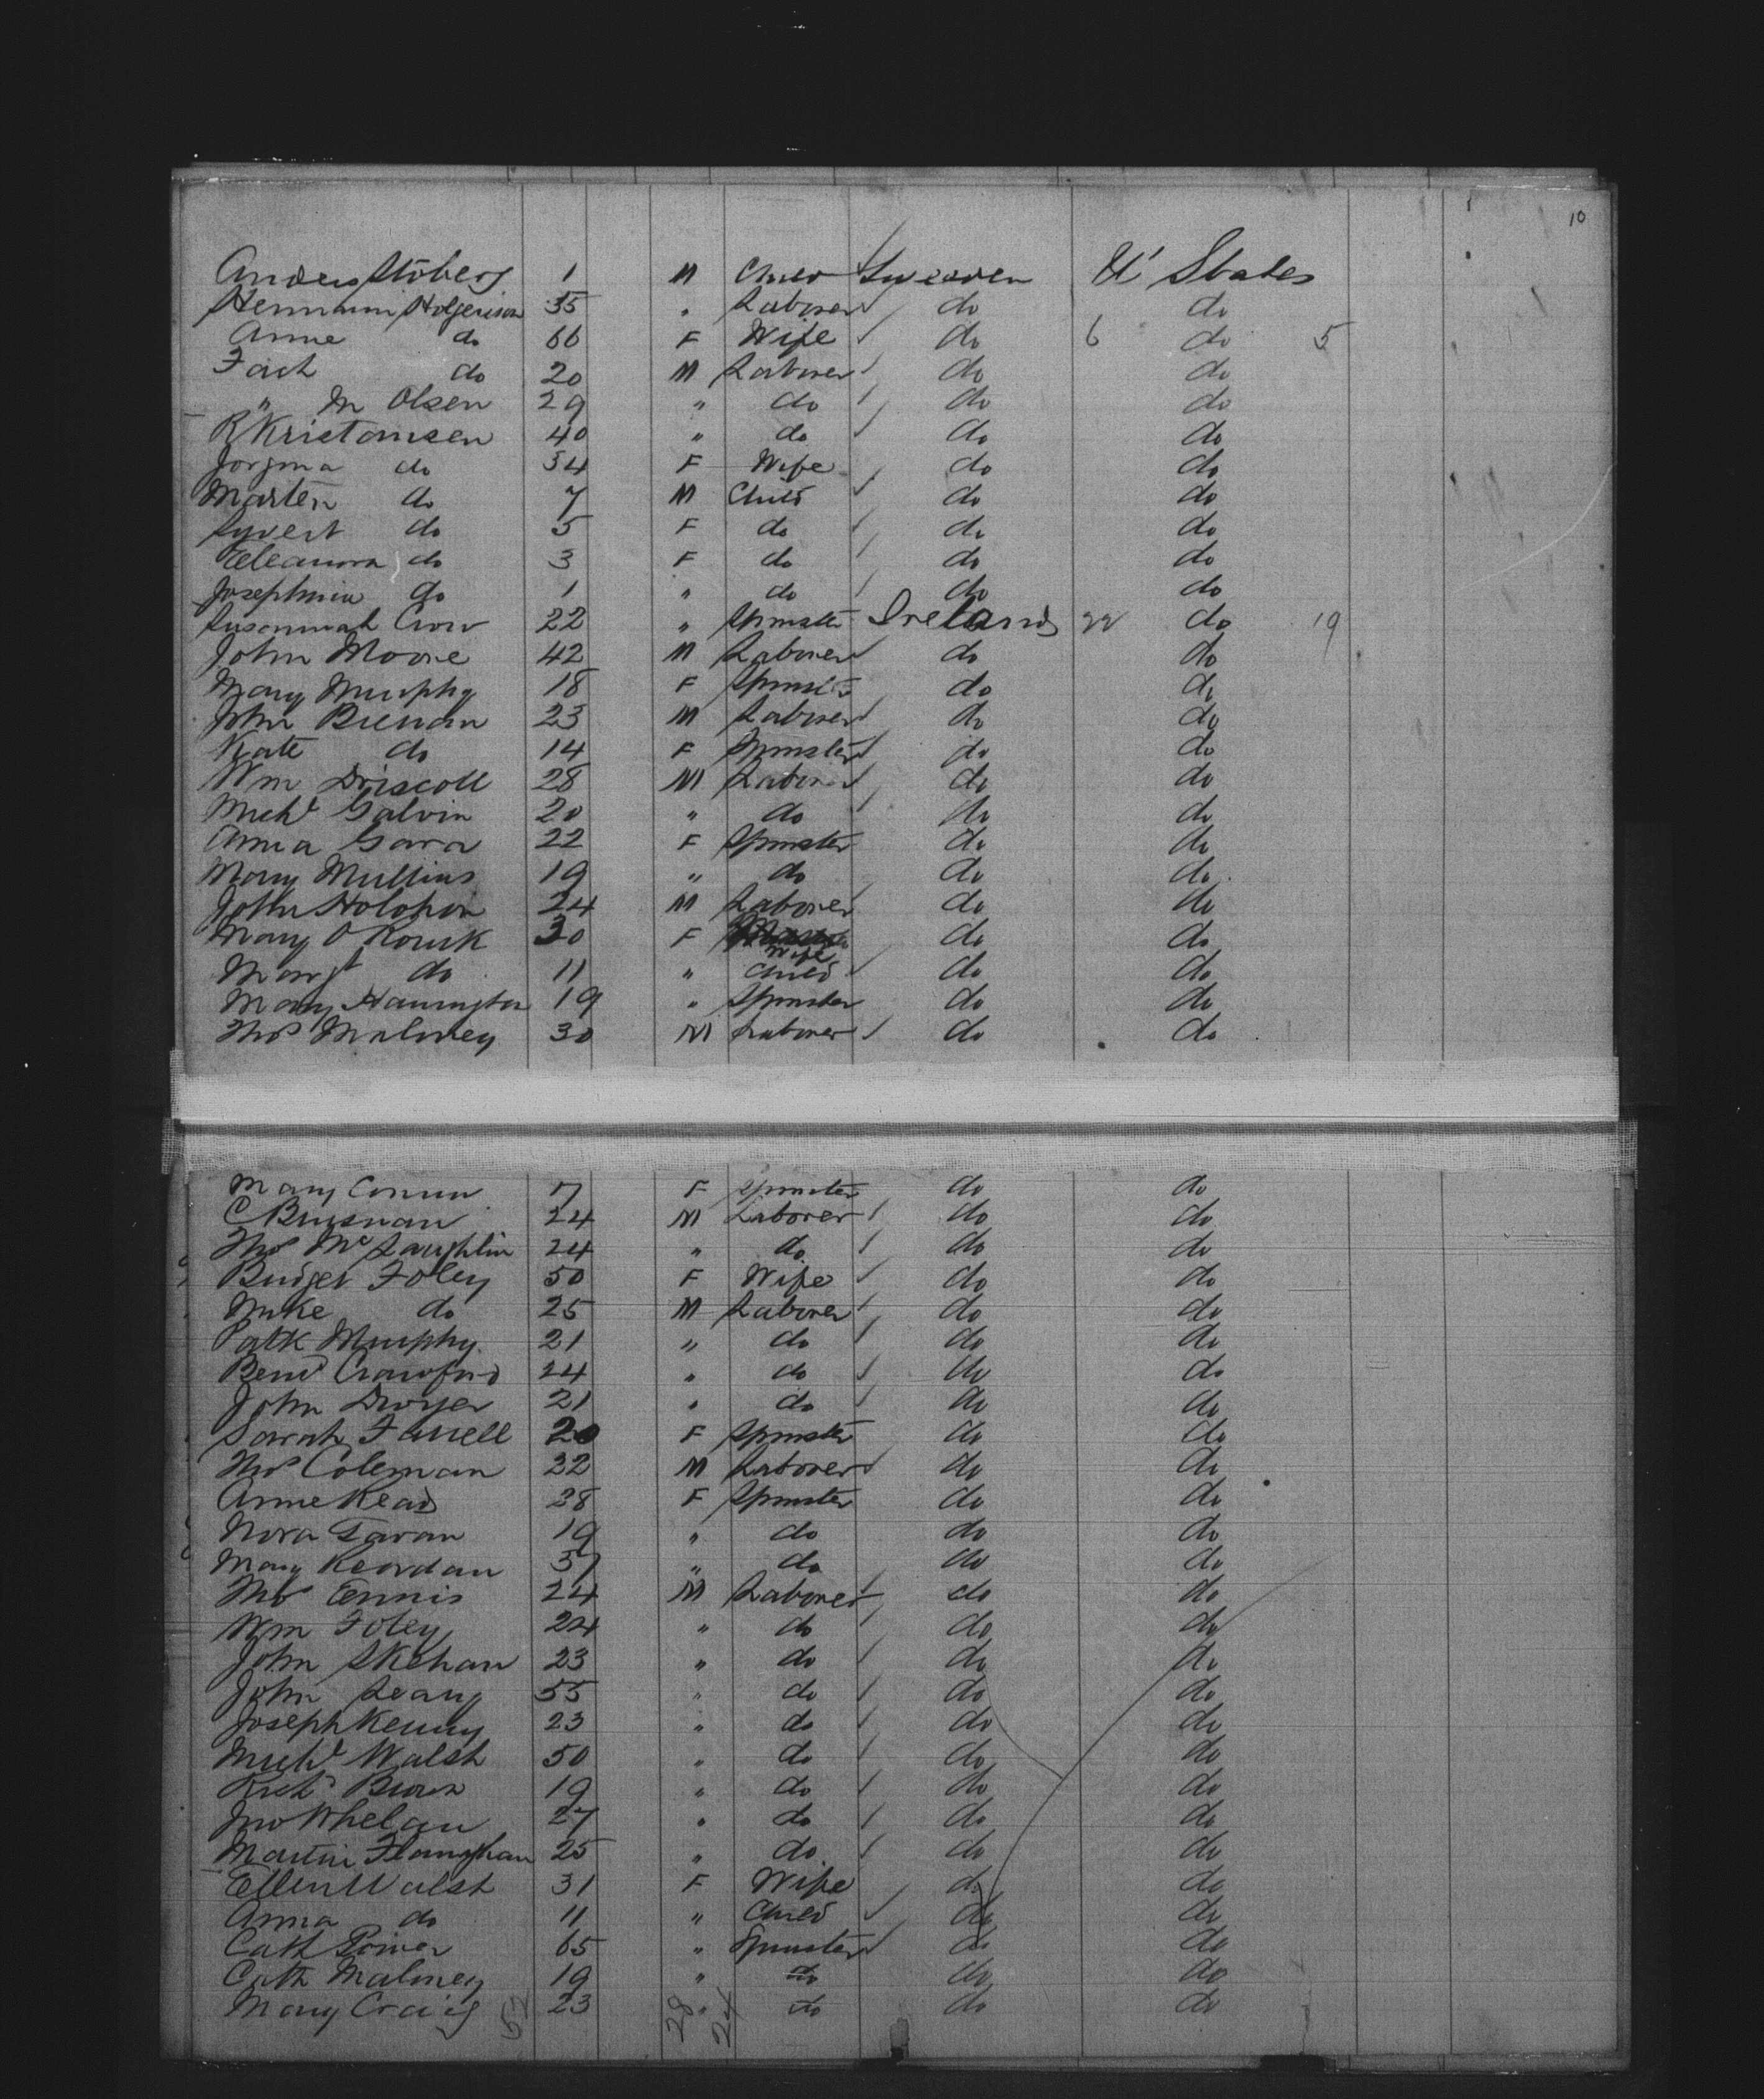 10
Anders Stöberg 1 M Child Sweden U' States
Hermann Holgerison 35 " Laborer do do
Anne do 66 F Wife do 6 do 5
do 20 M Laborer do do
" M Olsen 29 " do do do
R Kristansen 40 " do do do
Jorgina do 34 F Wife do do
Marten do 7 M Child do do
Syvert do 5 F do do do
Eleanora do 3 F do do do
Josephina do 1 " do do do
Susannah Crow 22 " Spinster Ireland 22 do 19
John Moore 42 M Laborer do do
Mary Murphy 18 F Spinster do do
John Brenan 23 M Laborer do do
Kate do 14 F Spinster do do
Wm Driscoll 28 M Laborer do do
Michl Galvin 20 " do do do
Anna Gara 22 F Spinster do do
Mary Mullins 19 " do do do
John Holohan 24 M Laborer do do
Mary O Rourk 30 F Wife do do
Margt do 11 " Child do do
Mary Hanington 19 " Spinster do do
Thos Maloney 30 M Laborer do do
Mary 17 F Spinster do do
C Brusnan 24 M Laborer do do
Thos McLaughlin 24 " do do do
Bridget Foley 50 F Wife do do
Mike do 25 M Laborer do do
Patk Murphy 21 " do do do
Bend Crawford 24 " do do do
John Dwyer 21 " do do do
Sarah Farrell 20 F Spinster do do
Thos Coleman 22 M Laborer do do
Anne Read 28 F Spinster do do
Nora Gavan 19 " do do do
Mary Reordan 37 " do do do
Thos Ennis 24 M Laborer do do
Wm Foley 24 " do do do
John Skehan 23 " do do do
John Leary 55 " do do do
Joseph Kenny 23 " do do do
Michl Walsh 50 " do do do
Richd 19 " do do do
Jno Whelan 27 " do do do
Martin Flanighan 25 " do do do
Ellen Walsh 31 F Wife do do
Anna do 11 " Child do do
Cath Power 65 " Spinster do do
Cath Maloney 19 " do do do
Mary Craig 23 " do do do
52 28 24